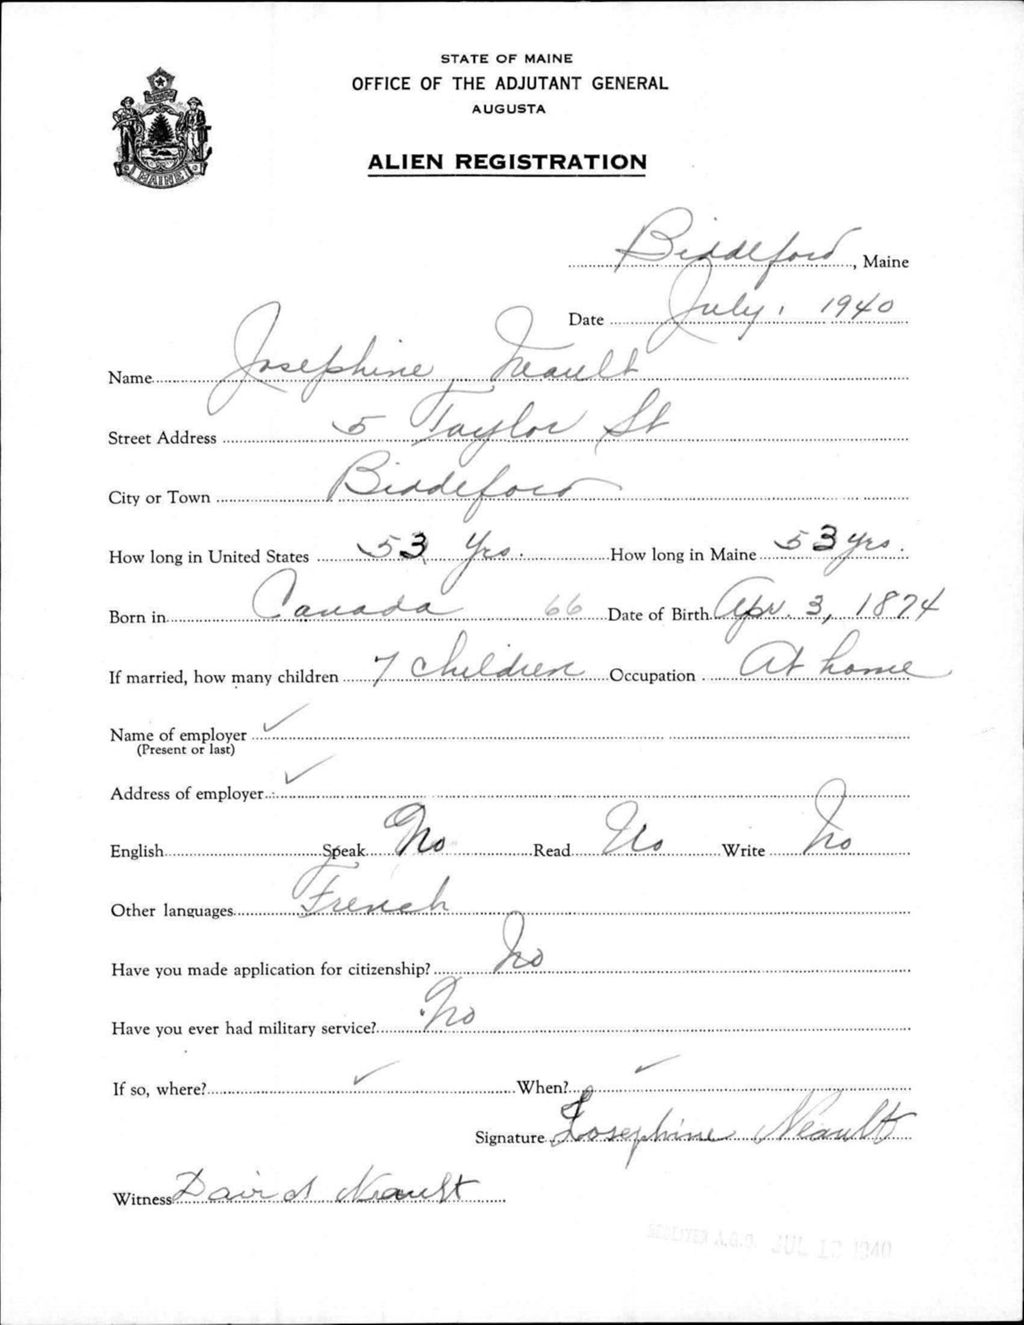 STATE OF MAINE
OFFICE OF THE ADJUTANT GENERAL
AUGUSTA
MAINE
ALIEN REGISTRATION
Biddeford, Maine
Date July, 1940
Name Josephine Neault
Street Address 5 Taylor St
City or Town Biddeford
How long in United States 53 Yrs. How long in Maine 53 yrs.
Born in Canada 66 Date of Birth Apr. 3, 1874
If married, how many children 7 children Occupation At home
Name of employer ✓
(Present or last)
Address of employer ✓
English Speak No Read No Write No
Other languages French
Have you made application for citizenship? No
Have you ever had military service? No
If so, where? ✓ When? ✓
Signature Josephine Neault
Witness David Neault
RECEIVED A.G.O. JUL 1940